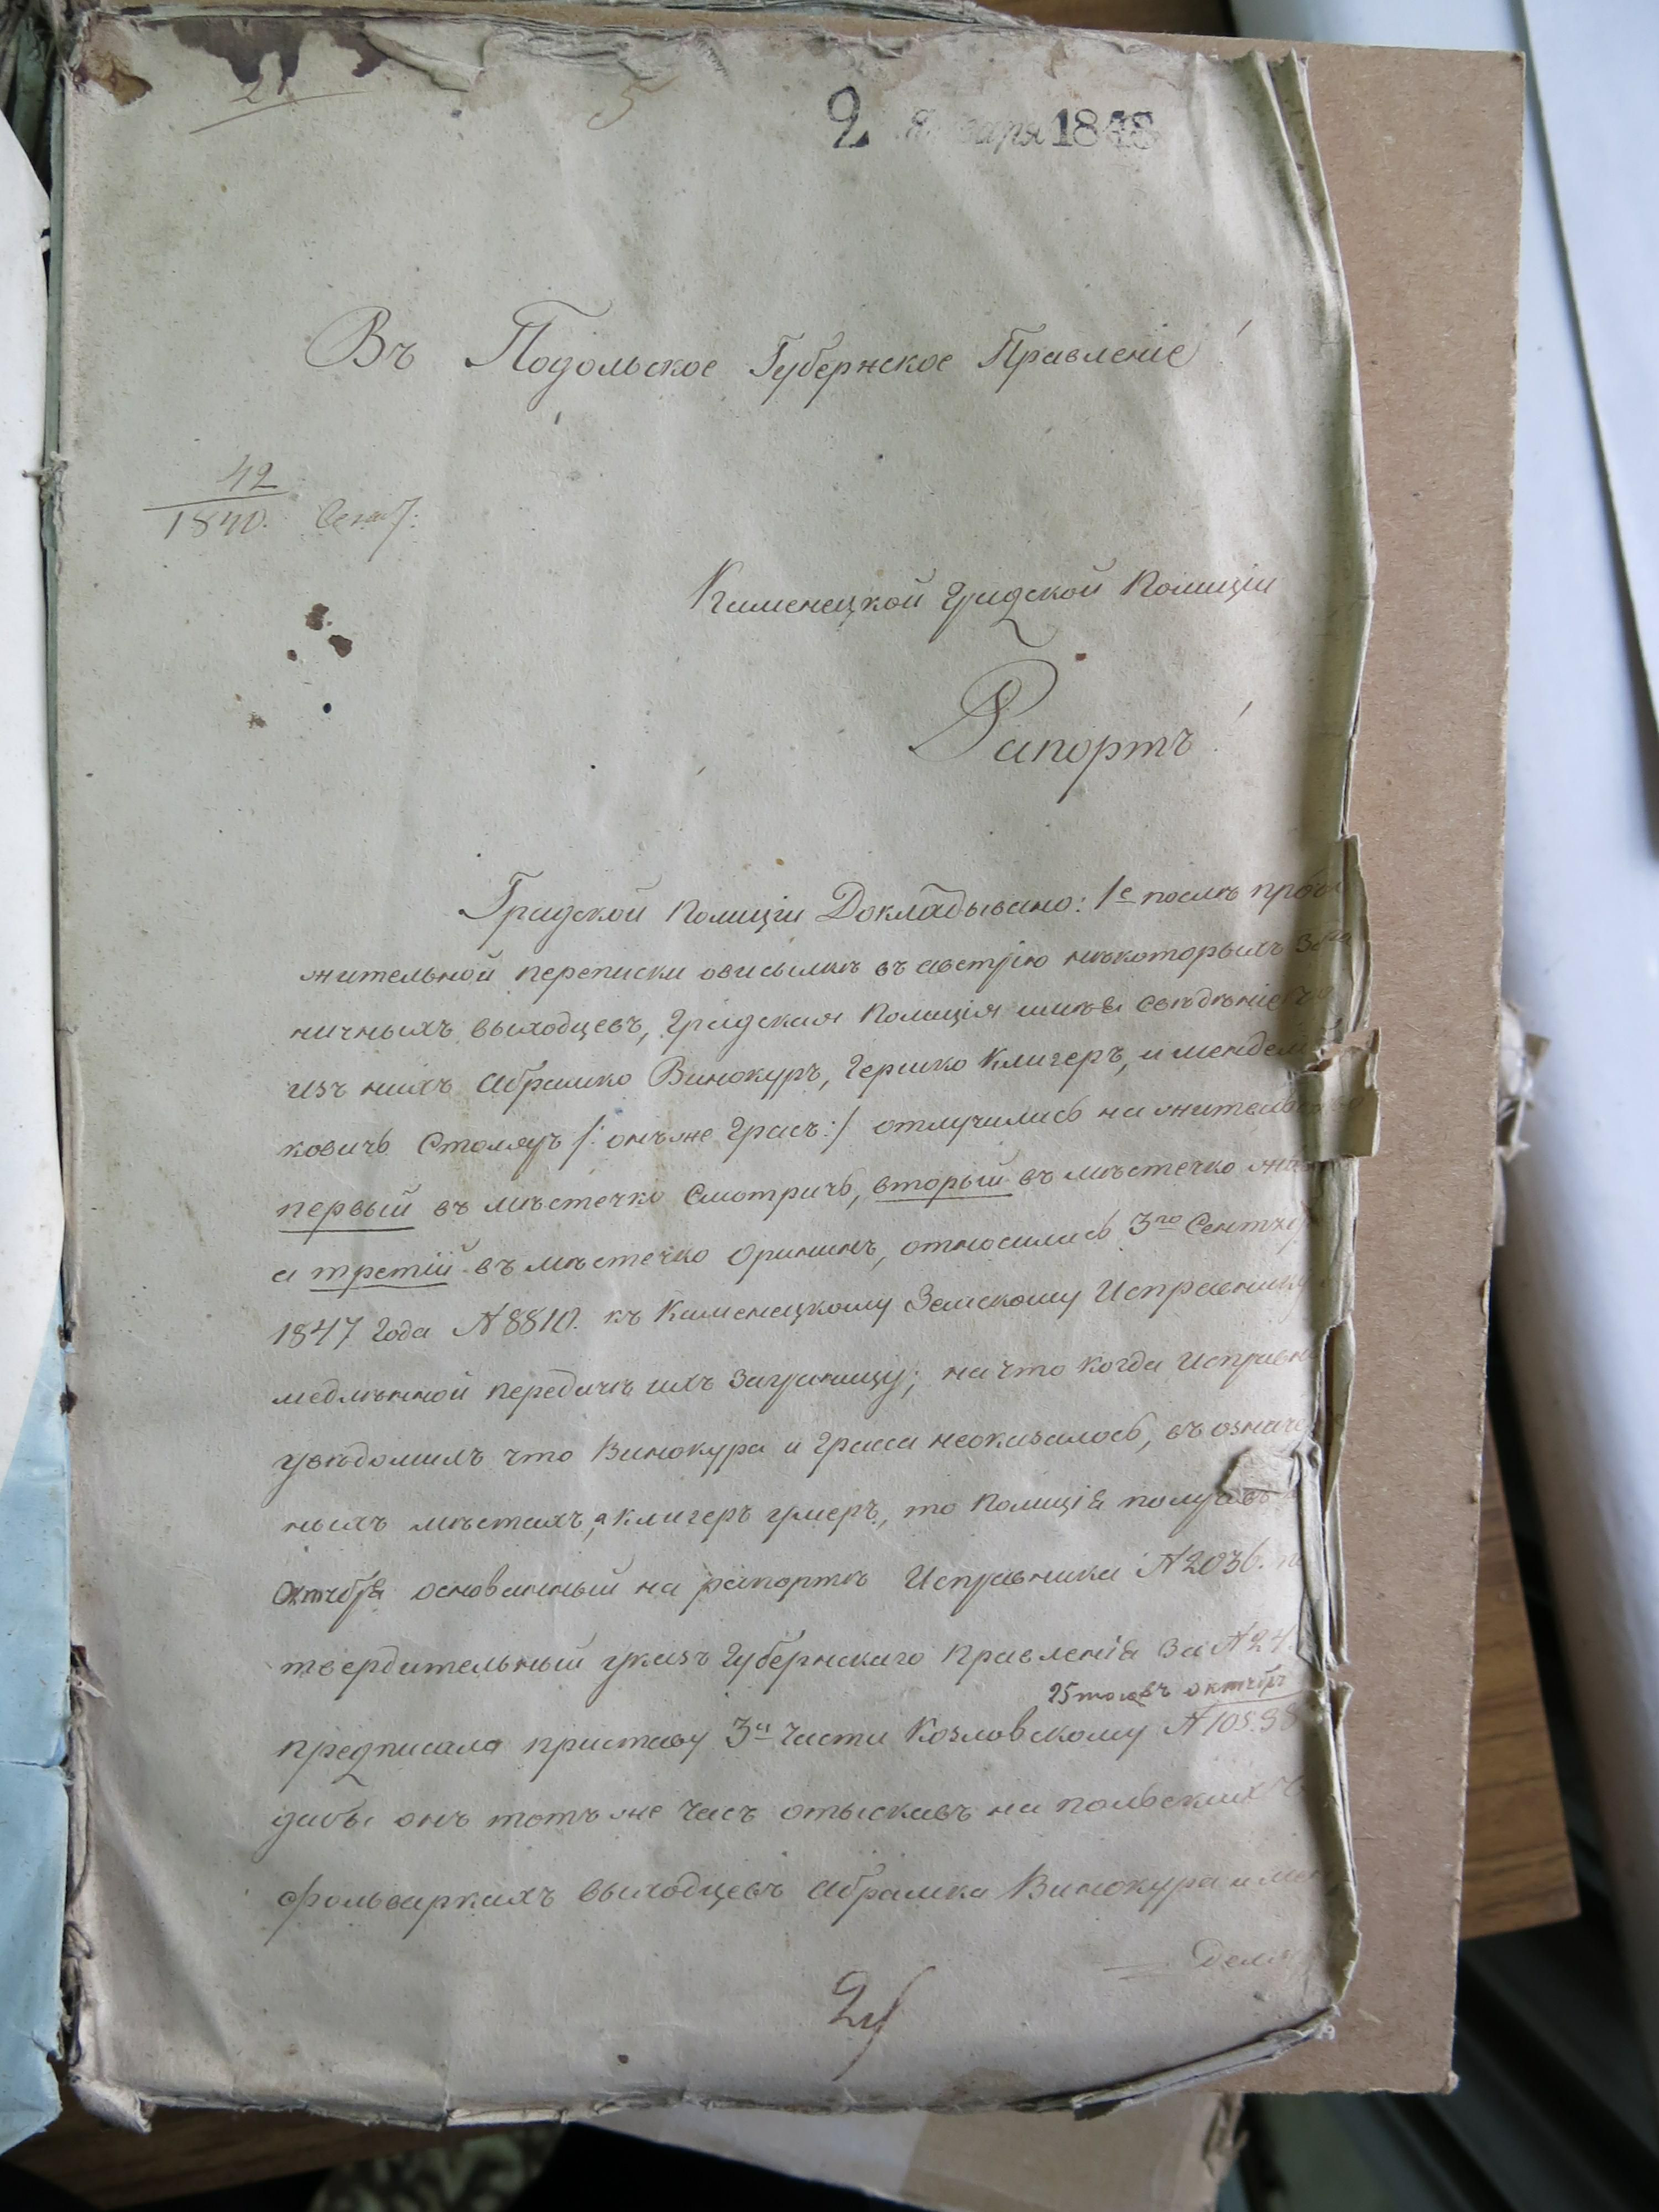 21
5
2 Января 1848
Въ Подольское Губернское Правленіе!
42
1840.
Каменецкой Градской Полиціи
Рапортъ!
Градской Полиціи Докладывано: 1е послѣ
жительной переписки овысылкѣ въ австрію нѣкоторыхъ
ничныхъ выходцевъ, Градская Полиція имѣя свѣдѣніе
изъ нихъ Абрамко Винокуръ, Гершко Клигеръ, и Мендель
ковичъ Столяръ /: онъже Грасъ:/ отлучились на
первый въ мѣстечко Смотричь, вторый въ мѣстечко
а третій въ мѣстечко Оринин, относилась 3го
1847 Года №8810. къ Каменецкому Земскому Исправнику
медлѣнной передачѣ ихъ заграницу; начто когда
увѣдомилъ что Винокура и Граса неоказалось, въ означен
ныхъ мѣстахъ, а Клигеръ умеръ, то Полиція получивъ
Октября основанный на рапортѣ Исправника №2036.
твердительный указъ Губернскаго Правленія за №
25того октбр
предписала приставу 3й Части Козловскому №10598
дабы онъ тотъ же часъ отыскавъ на польскихъ
фольваркахъ выходцевъ Абрамка Винокура и